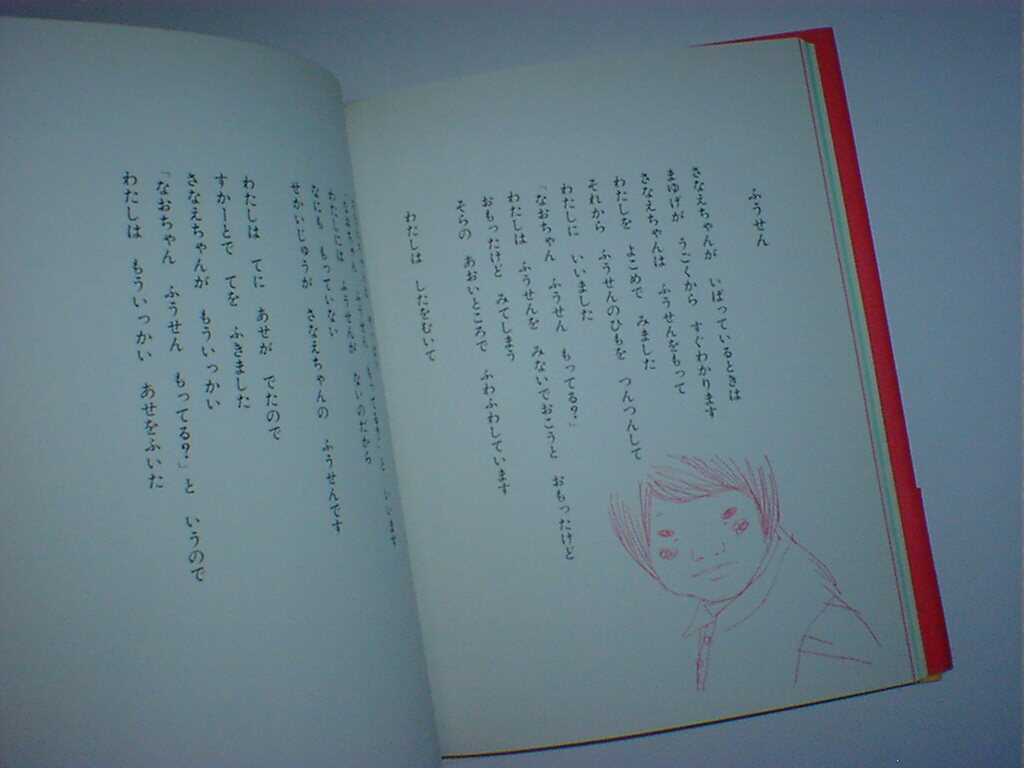 ふうせん
さなえちゃんが いばっているときは
まゆげが うごくから すぐわかります
さなえちゃんは ふうせんをもって
わたしを よこめで みました
それから ふうせんのひもを つんつんして
わたしに いいました
「なおちゃん ふうせん もってる?」
わたしは ふうせんを みないでおこうと おもったけど
おもったけど みてしまう
そらの あおいところで ふわふわしています
わたしは したをむいて
わたしには ふうせんが ないのだから
なにも もっていない
せかいじゅうが さなえちゃんの ふうせんです
わたしは てに あせが でたので
すかーとで てを ふきました
さなえちゃんが もういっかい
「なおちゃん ふうせん もってる?」と いうので
わたしは もういっかい あせをふいた